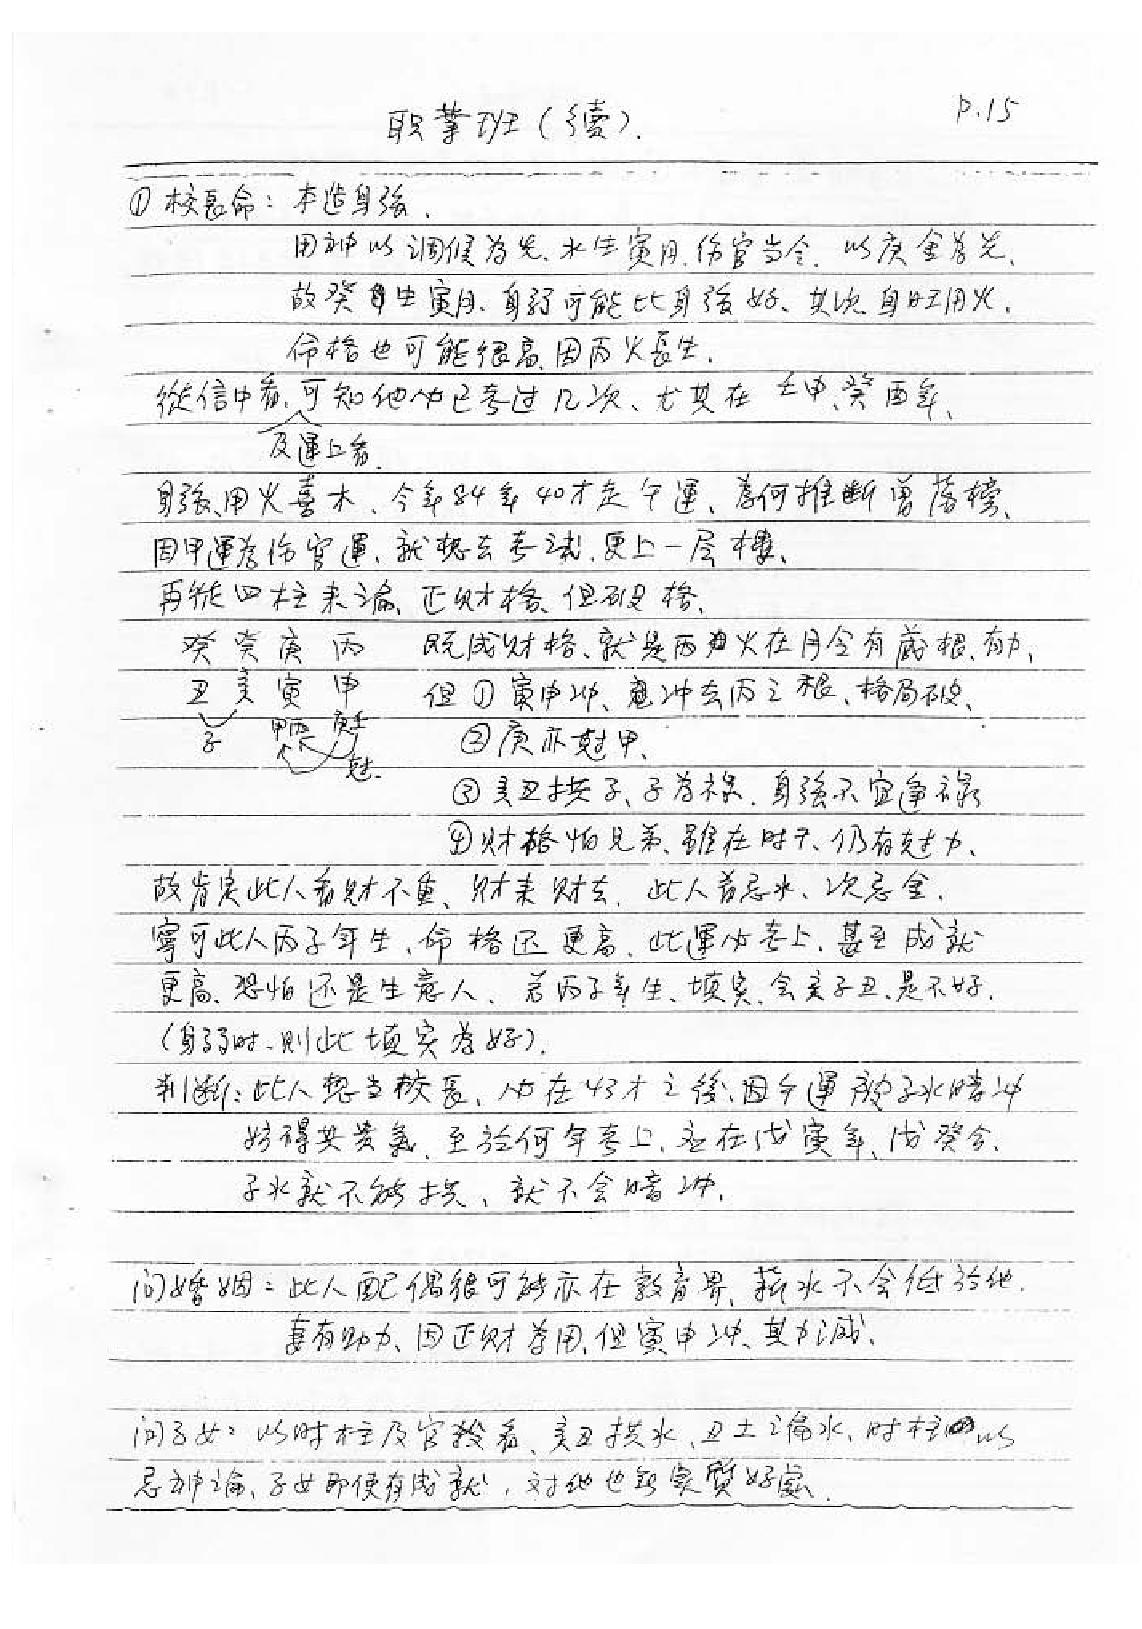 P.15
职業班(續).
① 校長命: 本造身強.
用神以调候為先、水生寅月.伤官当令. 以庚金為先.
故癸日生寅月、身弱可能比身強好、其次身旺用火.
命格也可能很高、因丙火長生.
從信中看、可知他必已考过几次、尤其在 壬申、癸酉年、
及運上看.
身強、用火喜木、今年84年40才走午運、為何推断曾落榜、
因甲運為伤官運、就想去考試、更上一层樓、
再從四柱来論、正财格、但破格、
癸 癸 庚 丙 既成财格、就是丙火在月令有藏根、有力、
丑 亥 寅 申 但①寅申冲、冲去丙之根、格局破、
子 甲丙 庚壬 ②庚亦尅甲、
尅.
③亥丑拱子、子為祿、身強不宜逢祿
④财格怕兄弟、雖在时干、仍有尅力、
故肯定此人看财不重、财来财去. 此人首忌水、次忌金.
寧可此人丙子年生、命格还更高、此運必考上、甚至成就
更高、恐怕还是生意人、若丙子年生、填实、会亥子丑、是不好.
(身弱时、则此填实為好).
判断: 此人想当校長、必在43才之後、因午運被子水暗冲
妨碍其貴氣、至於何年考上、应在戊寅年、戊癸合.
子水就不能拱、就不会暗冲.
问婚姻: 此人配偶很可能亦在教育界、薪水不会低於他.
妻有助力、因正财為用、但寅申冲、其力減、
问子女: 以时柱及官殺看、亥丑拱水、丑土論水、时柱以
忌神論、子女即使有成就, 对他也無实質好處.